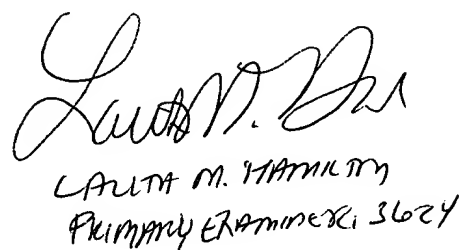 LALITA M. HAMILTON
PRIMARY EXAMINER, 3624